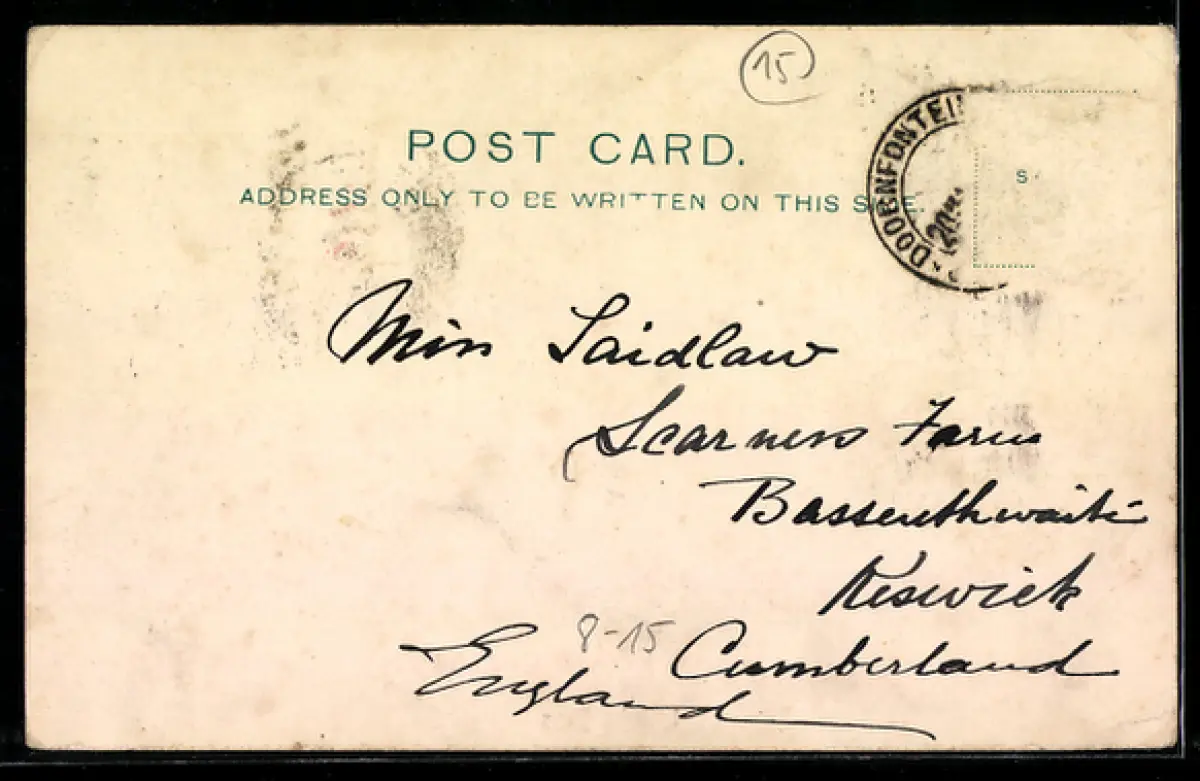 15
POST CARD.
ADDRESS ONLY TO BE WRITTEN ON THIS SIDE.
DOORNFONTEIN
S
Miss Laidlaw
Scarness Farm
Bassenthwaite
Keswick
8-15
Cumberland
England